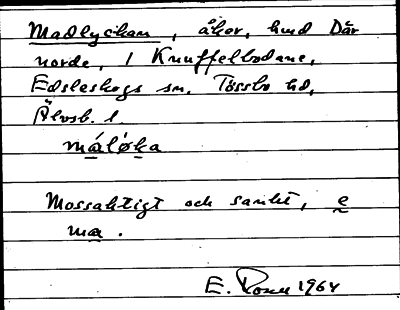 Madlyckan, åker, hmd Där
norde, i Knuffelbodane,
Edsleskogs sn. Tössbo hd,
Älvsb. l.
máløka
Mossaktigt och sankt, e
ma.
E. 1964